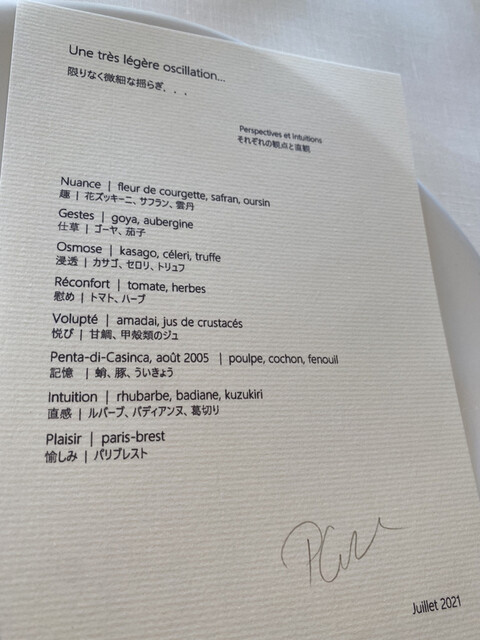 Une très légère oscillation...
限りなく微細な揺らぎ．．．
Perspectives et Intuitions
それぞれの観点と直観
Nuance | fleur de courgette, safran, oursin
趣 | 花ズッキーニ、サフラン、雲丹
Gestes | goya, aubergine
仕草 | ゴーヤ、茄子
Osmose | kasago, céleri, truffe
浸透 | カサゴ、セロリ、トリュフ
Réconfort | tomate, herbes
慰め | トマト、ハーブ
Volupté | amadai, jus de crustacés
悦び | 甘鯛、甲殻類のジュ
Penta-di-Casinca, août 2005 | poulpe, cochon, fenouil
記憶 | 蛸、豚、ういきょう
Intuition | rhubarbe, badiane, kuzukiri
直感 | ルバーブ、バディアンヌ、葛切り
Plaisir | paris-brest
愉しみ | パリブレスト
Juillet 2021